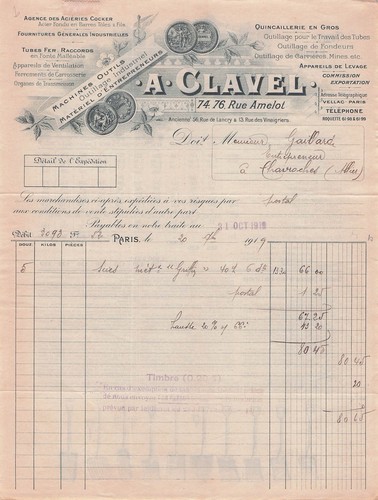 AGENCE DES ACIERIES COCKER
Acier Fondu en Barres Tôles & Fils
FOURNITURES GÉNÉRALES INDUSTRIELLES
TUBES FER, RACCORDS
en Fonte Malléable
Appareils de Ventilation
Ferrements de Carrosserie
Organes de Transmission
MACHINES OUTILS
Outillage Industriel
MATÉRIEL D'ENTREPRENEURS
QUINCAILLERIE EN GROS
Outillage pour le Travail des Tubes
Outillage de Fondeurs
Outillage de Carrières, Mines etc.
APPAREILS DE LEVAGE
COMMISSION
EXPORTATION
Adresse Télégraphique
VELLAC-PARIS
TÉLÉPHONE
A. CLAVEL
74.76, Rue Amelot
Anciennt 36, Rue de Lancry & 13, Rue des Vinaigriers
Doit Monsieur Gaillard
entrepreneur
à Chavroches (Allier)
Détail de l'Expédition
Les marchandises ci-après expédiées à vos risques par postal
aux conditions de vente stipulées d'autre part
Payables en notre traite au 31 OCT 1919
Débit 2093 F°
PARIS, le 20 1919
DOUZ. KILOS PIÈCES
5 Scies 13.20 66 00
postal 1 25
67.25
20 % 13 20
80 45
80 45
20
80 65
Timbre (0.20)